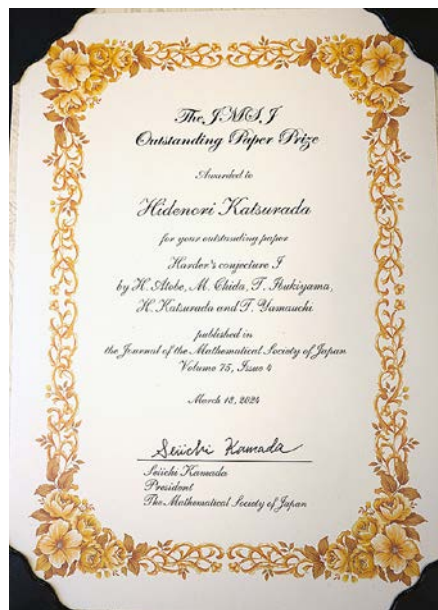 The JMSJ
Outstanding Paper Prize
Awarded to
Hidenori Katsurada
for your outstanding paper
Harder's conjecture I
by H. Atobe, M. Chida, T. Ibukiyama,
H. Katsurada and T. Yamauchi
published in
the Journal of the Mathematical Society of Japan
Volume 75, Issue 4
March 18, 2024
Seiichi Kamada
Seiichi Kamada
President
The Mathematical Society of Japan